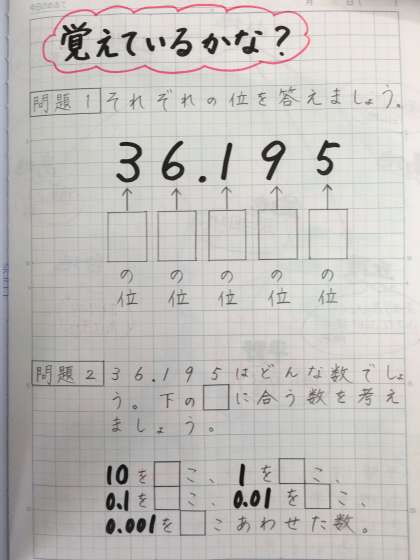 覚えているかな？
問題1 それぞれの位を答えましょう。
36.195
の の の の の
位 位 位 位 位
問題2 36.195はどんな数でしょ
う。下の□に合う数を考え
ましょう。
10を□こ、1を□こ、
0.1を□こ、0.01を□こ、
0.001を□こあわせた数。